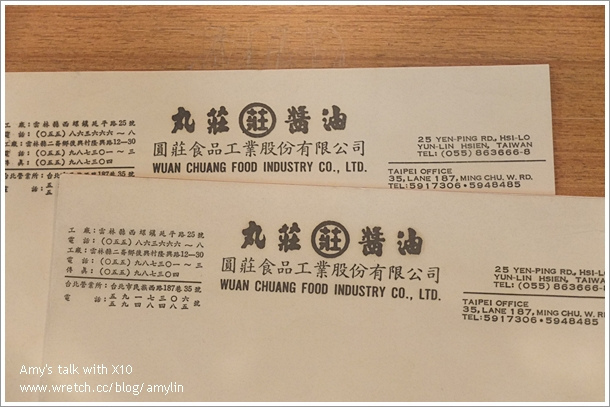 丸莊 莊 醬油
圓莊食品工業股份有限公司
WUAN CHUANG FOOD INDUSTRY CO., LTD.
工廠:雲林縣西螺鎮延平路25號
電話:(〇五五)八六三六六六~八
工廠:雲林縣二崙鄉復興村隆興路12—30
電話:(〇五五)九八七三〇一~三
傳真:(〇五五)九八七三〇四
台北營業所:台北市民族西路187巷35號
25 YEN-PING RD., HSI-LO
YUN-LIN HSIEN, TAIWAN
TEL: (055) 863666-8
TAIPEI OFFICE
35, LANE 187, MING CHU. W. RD.
TEL:5917306•5948485
丸莊 莊 醬油
圓莊食品工業股份有限公司
WUAN CHUANG FOOD INDUSTRY CO., LTD.
工廠:雲林縣西螺鎮延平路25號
電話:(〇五五)八六三六六六~八
工廠:雲林縣二崙鄉復興村隆興路12—30
電話:(〇五五)九八七三〇一~三
傳真:(〇五五)九八七三〇四
台北營業所:台北市民族西路187巷35號
電話:五九一七三〇六
五九四八四八五
25 YEN-PING RD., HSI-LO
YUN-LIN HSIEN, TAIWA
TEL: (055) 863666-8
TAIPEI OFFICE
35, LANE 187, MING CHU. W. RD
TEL:5917306•5948485
Amy's talk with X10
www.wretch.cc/blog/amylin